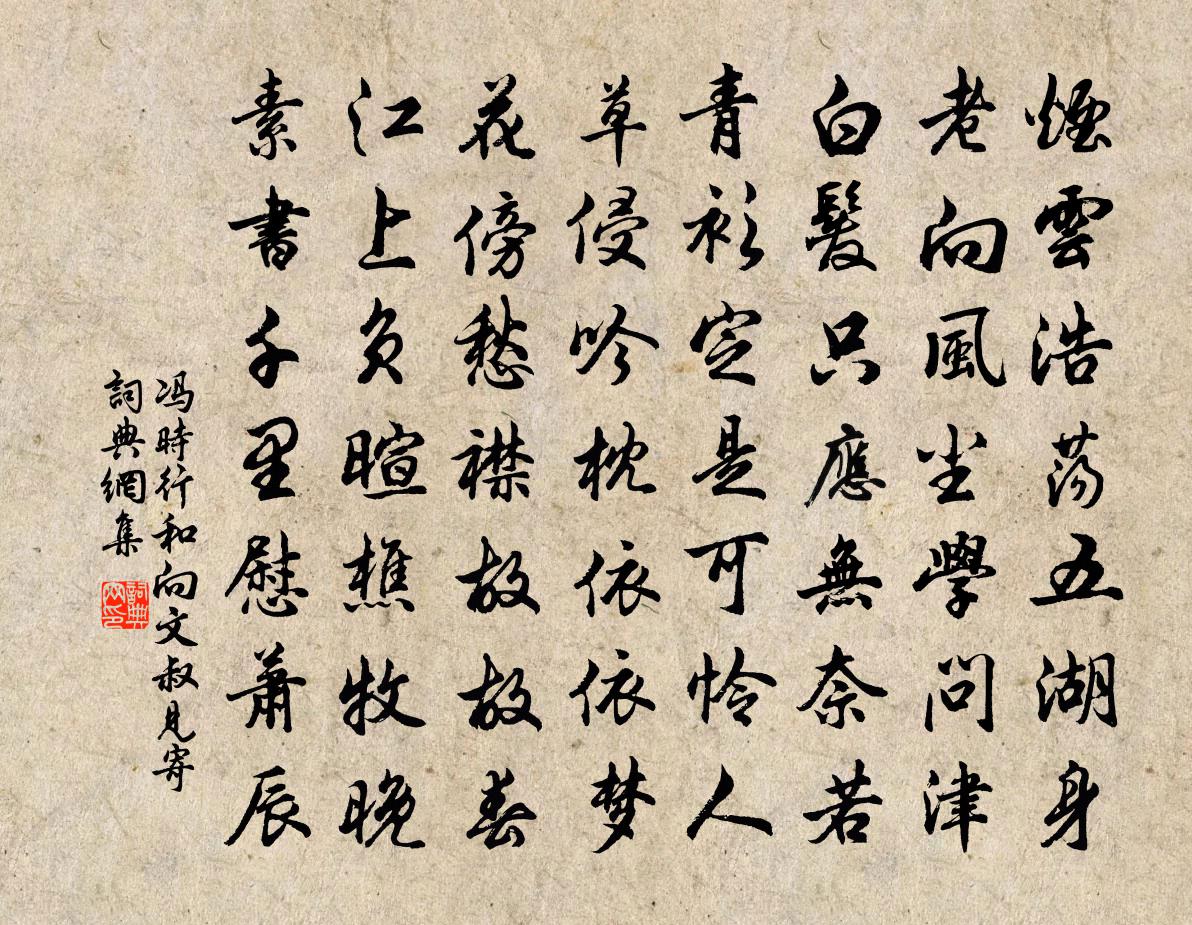 煙雲浩蕩五湖身
老向風尘學問津
白髮只應無奈若
青衫定是可怜人
草侵吟枕依依梦
花傍愁襟故故春
江上负暄樵牧晚
素書千里慰蕭辰
冯時行和向文叔見寄
詞典網集
詞典
网印